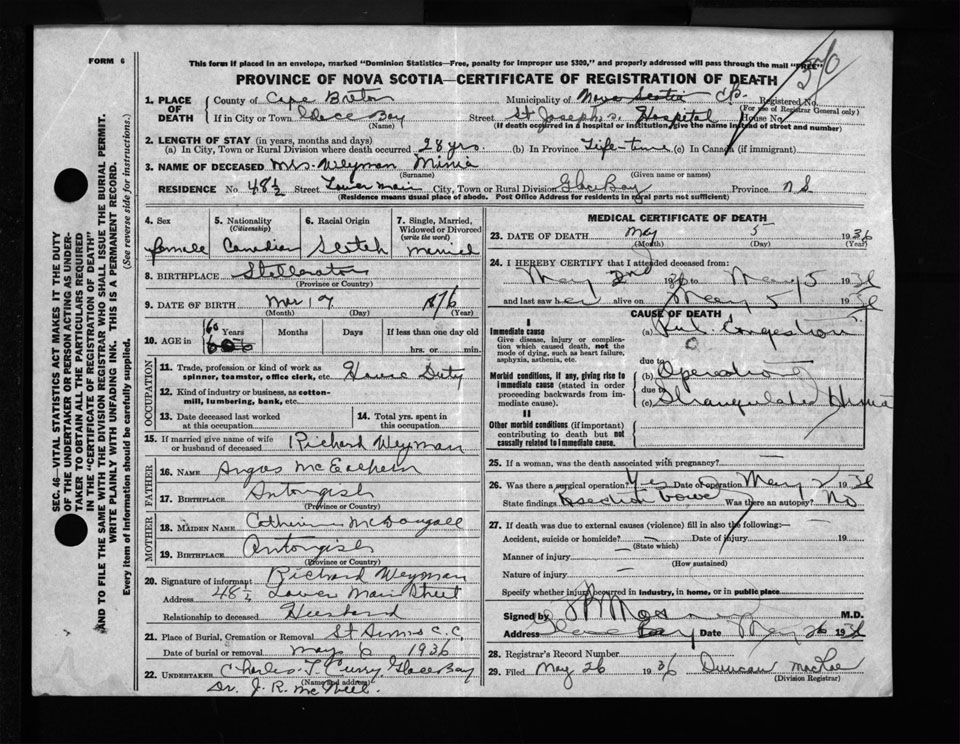 FORM 6
This form if placed in an envelope, marked "Dominion Statistics—Free, penalty for improper use $300," and properly addressed will pass through the mail "FREE"
PROVINCE OF NOVA SCOTIA—CERTIFICATE OF REGISTRATION OF DEATH
1. PLACE OF DEATH
County of Cape Breton Municipality of Nova Scotia C.B. Registered No.
(For use of Registrar General only)
If in City or Town Glace Bay Street St Joseph's Hospital House No.
(Name) (If death occurred in a hospital or institution, give the name instead of street and number)
2. LENGTH OF STAY (in years, months and days)
(a) In City, Town or Rural Division where death occurred 28 yrs. (b) In Province Life-time (c) In Canada (if immigrant)
3. NAME OF DECEASED Mrs. Weyman Minie
(Surname) (Given name or names)
RESIDENCE No. 48½ Street Lower Main City, Town or Rural Division Glace Bay Province N S
(Residence means usual place of abode. Post Office Address for residents in rural parts not sufficient)
4. Sex female
5. Nationality (Citizenship) Canadian
6. Racial Origin Scotch
7. Single, Married, Widowed or Divorced (write the word) Married
8. BIRTHPLACE Stellarton
(Province or Country)
9. DATE OF BIRTH Mar 19 1876
(Month) (Day) (Year)
10. AGE in 60 Years Months Days If less than one day old
hrs. or min.
OCCUPATION
11. Trade, profession or kind of work as spinner, teamster, office clerk, etc. House Duty
12. Kind of industry or business, as cotton-mill, lumbering, bank, etc.
13. Date deceased last worked at this occupation
14. Total yrs. spent in this occupation
15. If married give name of wife or husband of deceased Richard Weyman
FATHER
16. NAME Angus
17. BIRTHPLACE Antongish
(Province or Country)
MOTHER
18. MAIDEN NAME Catherine McDougall
19. BIRTHPLACE Antongish
(Province or Country)
20. Signature of informant Richard Weyman
Address Lower Main Street
Relationship to deceased Husband
21. Place of Burial, Cremation or Removal St Anns C.C.
Date of burial or removal May 6 1936
22. UNDERTAKER Charles T. Curry, Glace Bay
(Name and address)
Dr. J. R. McNeil.
MEDICAL CERTIFICATE OF DEATH
23. DATE OF DEATH May 5 1936
(Month) (Day) (Year)
24. I HEREBY CERTIFY that I attended deceased from:
May 2nd 1936 to May 5 1936
and last saw her alive on May 5 1936
CAUSE OF DEATH
I
Immediate cause
Give disease, injury or complication which caused death, not the mode of dying, such as heart failure, asphyxia, asthenia, etc.
(a) Pul Congestion
due to
Morbid conditions, if any, giving rise to immediate cause (stated in order proceeding backwards from immediate cause).
(b) Operation
due to
(c) Strangulated Hernia
II
Other morbid conditions (if important) contributing to death but not causally related to immediate cause.
25. If a woman, was the death associated with pregnancy?
26. Was there a surgical operation? Yes Date of operation May 2 1936
State findings Was there an autopsy? No
27. If death was due to external causes (violence) fill in also the following:—
Accident, suicide or homicide? Date of injury 19
(State which)
Manner of injury
(How sustained)
Nature of injury
Specify whether injury occurred in industry, in home, or in public place
Signed by M.D.
Address Glace Bay Date May 26 1936
28. Registrar's Record Number
29. Filed May 26 1936 Duncan MacRae
(Division Registrar)
SEC. 46—VITAL STATISTICS ACT MAKES IT THE DUTY
OF THE UNDERTAKER OR PERSON ACTING AS UNDERTAKER TO OBTAIN ALL THE PARTICULARS REQUIRED
IN THE "CERTIFICATE OF REGISTRATION OF DEATH"
AND TO FILE THE SAME WITH THE DIVISION REGISTRAR WHO SHALL ISSUE THE BURIAL PERMIT.
WRITE PLAINLY WITH UNFADING INK. THIS IS A PERMANENT RECORD.
Every item of information should be carefully supplied. (See reverse side for instructions.)